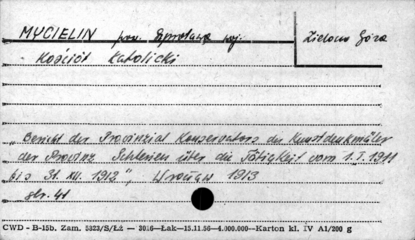 MYCIELIN pow. Szprotawa woj. Zielona Góra
Kościół katolicki
"Bericht der Provinzial Konservators der Kunstdenkmäler
der Provinz Schlesien über die Tätigkeit vom 1.I.1911
bis 31.XII.1912", Wrocław 1913
str. 41
CWD - B-15b. Zam. 5323/S/Łż — 3016—Łak—15.11.56—4.000.000—Karton kl. IV A1/200 g